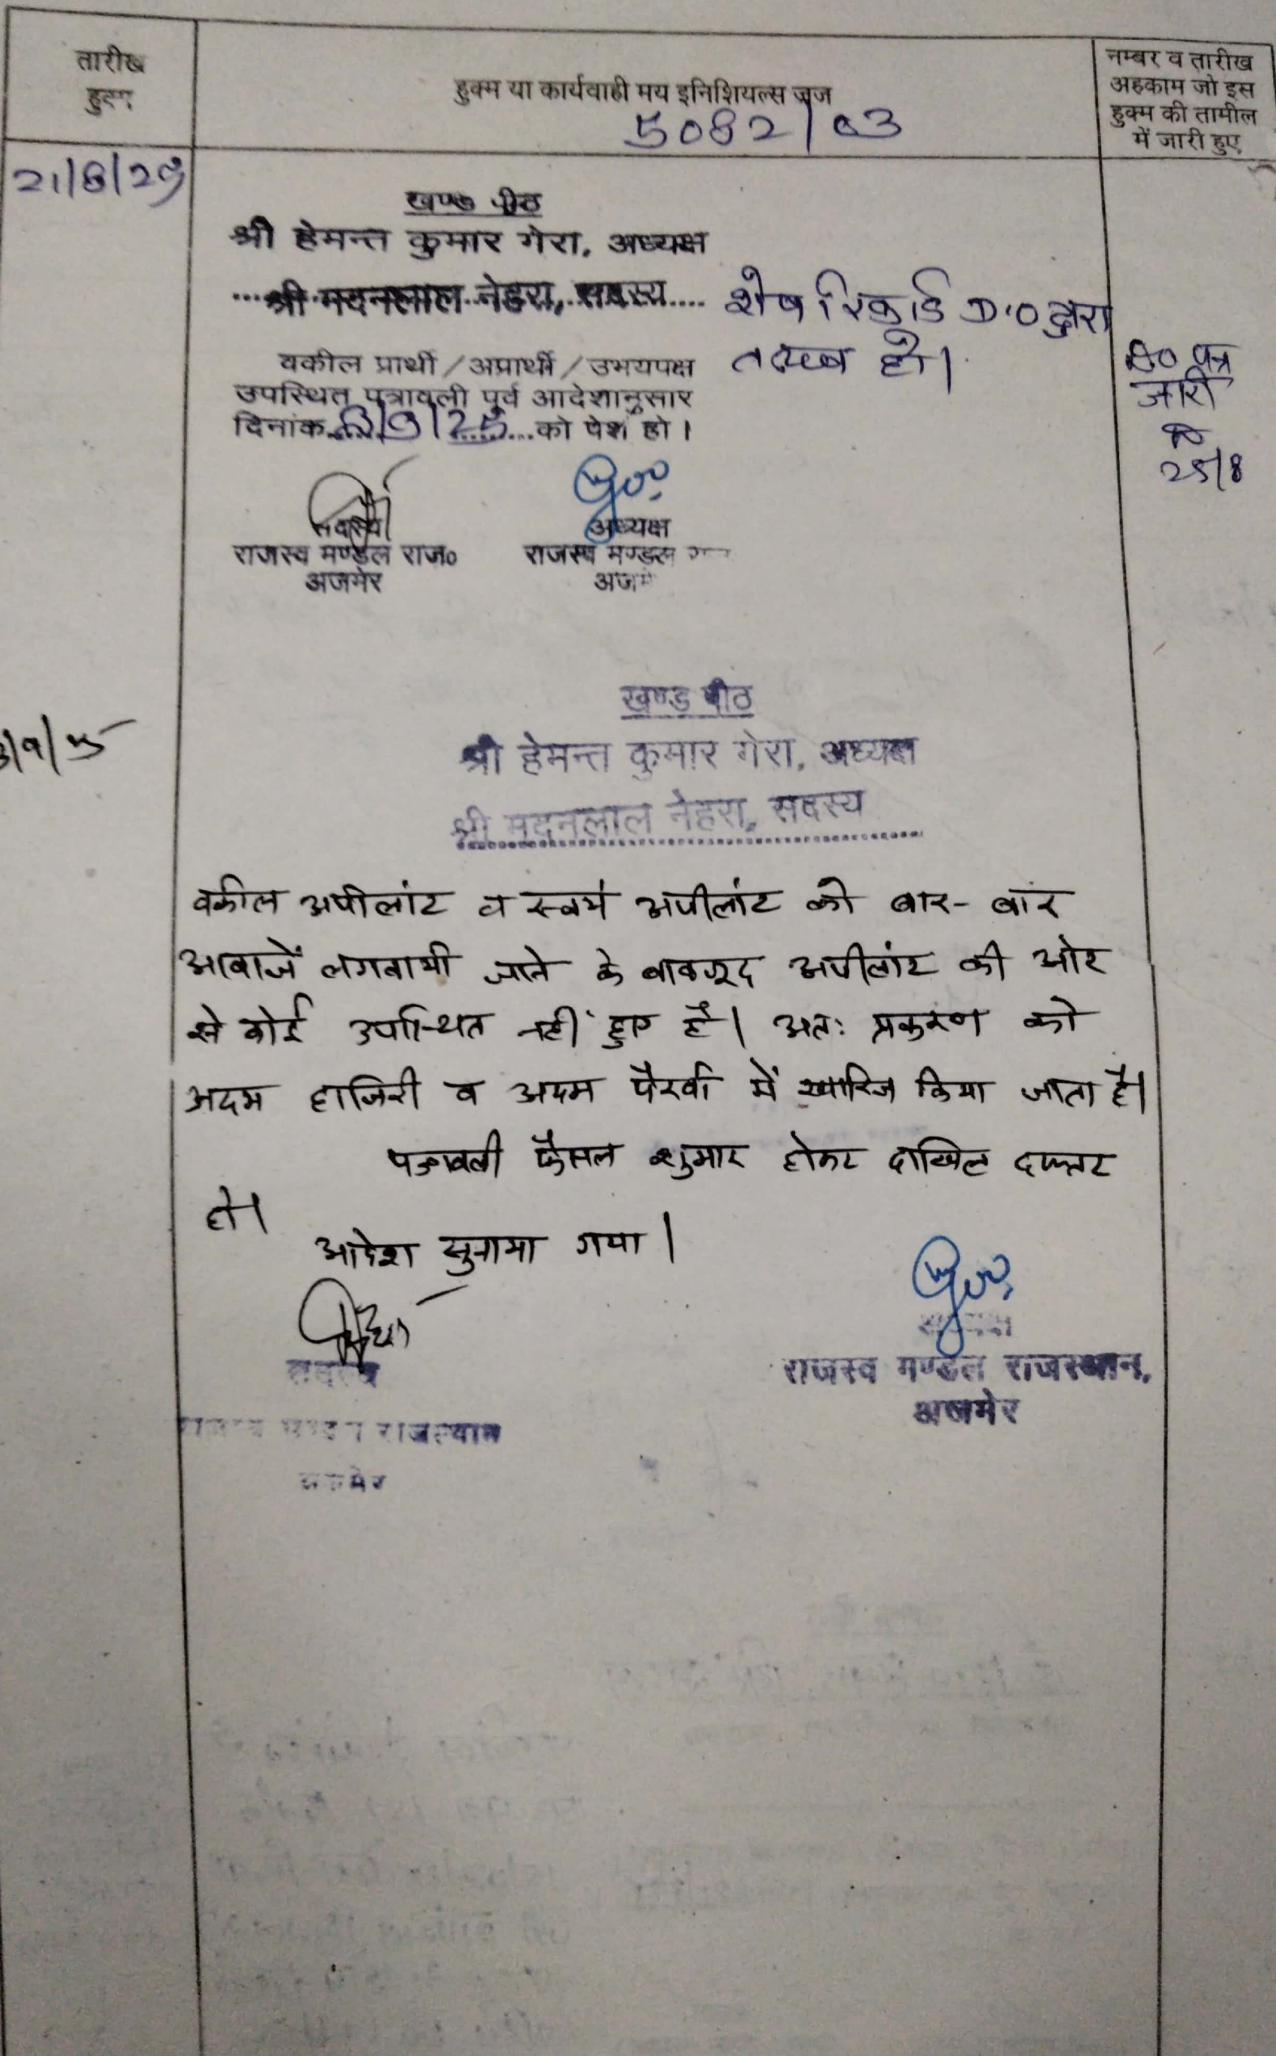 तारीख
हुक्म
हुक्म या कार्यवाही मय इनिशियल्स जज
5082/03
नम्बर व तारीख
अहकाम जो इस
हुक्म की तामील
में जारी हुए
21/8/25
खण्ड पीठ
श्री हेमन्त कुमार गेरा, अध्यक्ष
श्री मदनलाल नेहरा, सदस्य
शेष रिकार्ड D.O द्वारा
तलब हो।
वकील प्रार्थी/अप्रार्थी/उभयपक्ष
उपस्थित पत्रावली पूर्व आदेशानुसार
दिनांक 3/9/25 को पेश हो।
DO पत्र
जारी
25/8
सदस्य
अध्यक्ष
राजस्व मण्डल राज०
राजस्व मण्डल
अजमेर
खण्ड पीठ
3/9/25
श्री हेमन्त कुमार गेरा, अध्यक्ष
श्री मदनलाल नेहरा, सदस्य
वकील अपीलांट व स्वयं अपीलांट को बार-बार
आवाजें लगवायी जाने के बावजूद अपीलांट की ओर
से कोई उपस्थित नहीं हुए है। अतः प्रकरण को
अदम हाजिरी व अदम पैरवी में खारिज किया जाता है।
पत्रावली फैसल शुमार होकर दाखिल दफ्तर
हो।
आदेश सुनाया गया।
अध्यक्ष
सदस्य
राजस्व मण्डल राजस्थान,
अजमेर
राजस्व मण्डल राजस्थान
अजमेर